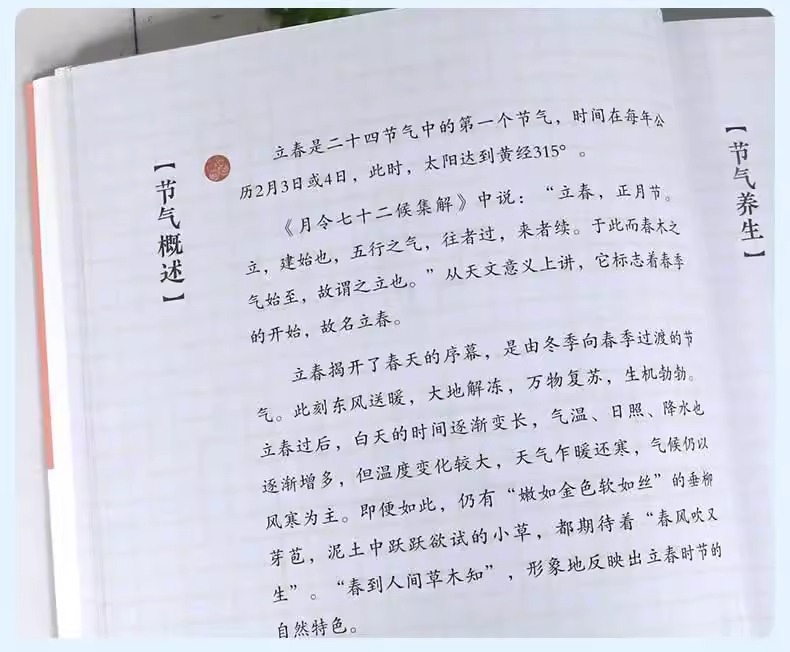 【节气概述】
立春是二十四节气中的第一个节气，时间在每年公
历2月3日或4日，此时，太阳达到黄经315°。
《月令七十二候集解》中说：“立春，正月节。
立，建始也，五行之气，往者过，来者续。于此而春木之
气始至，故谓之立也。”从天文意义上讲，它标志着春季
的开始，故名立春。
立春揭开了春天的序幕，是由冬季向春季过渡的节
气。此刻东风送暖，大地解冻，万物复苏，生机勃勃。
立春过后，白天的时间逐渐变长，气温、日照、降水也
逐渐增多，但温度变化较大，天气乍暖还寒，气候仍以
风寒为主。即便如此，仍有“嫩如金色软如丝”的垂柳
芽苞，泥土中跃跃欲试的小草，都期待着“春风吹又
生”。“春到人间草木知”，形象地反映出立春时节的
自然特色。
【节气养生】